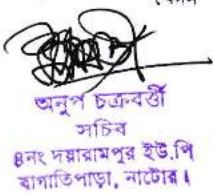 অনুপ চক্রবর্ত্তী
সচিব
৪নং দয়ারামপুর ইউ.পি
বাগাতিপাড়া, নাটোর।